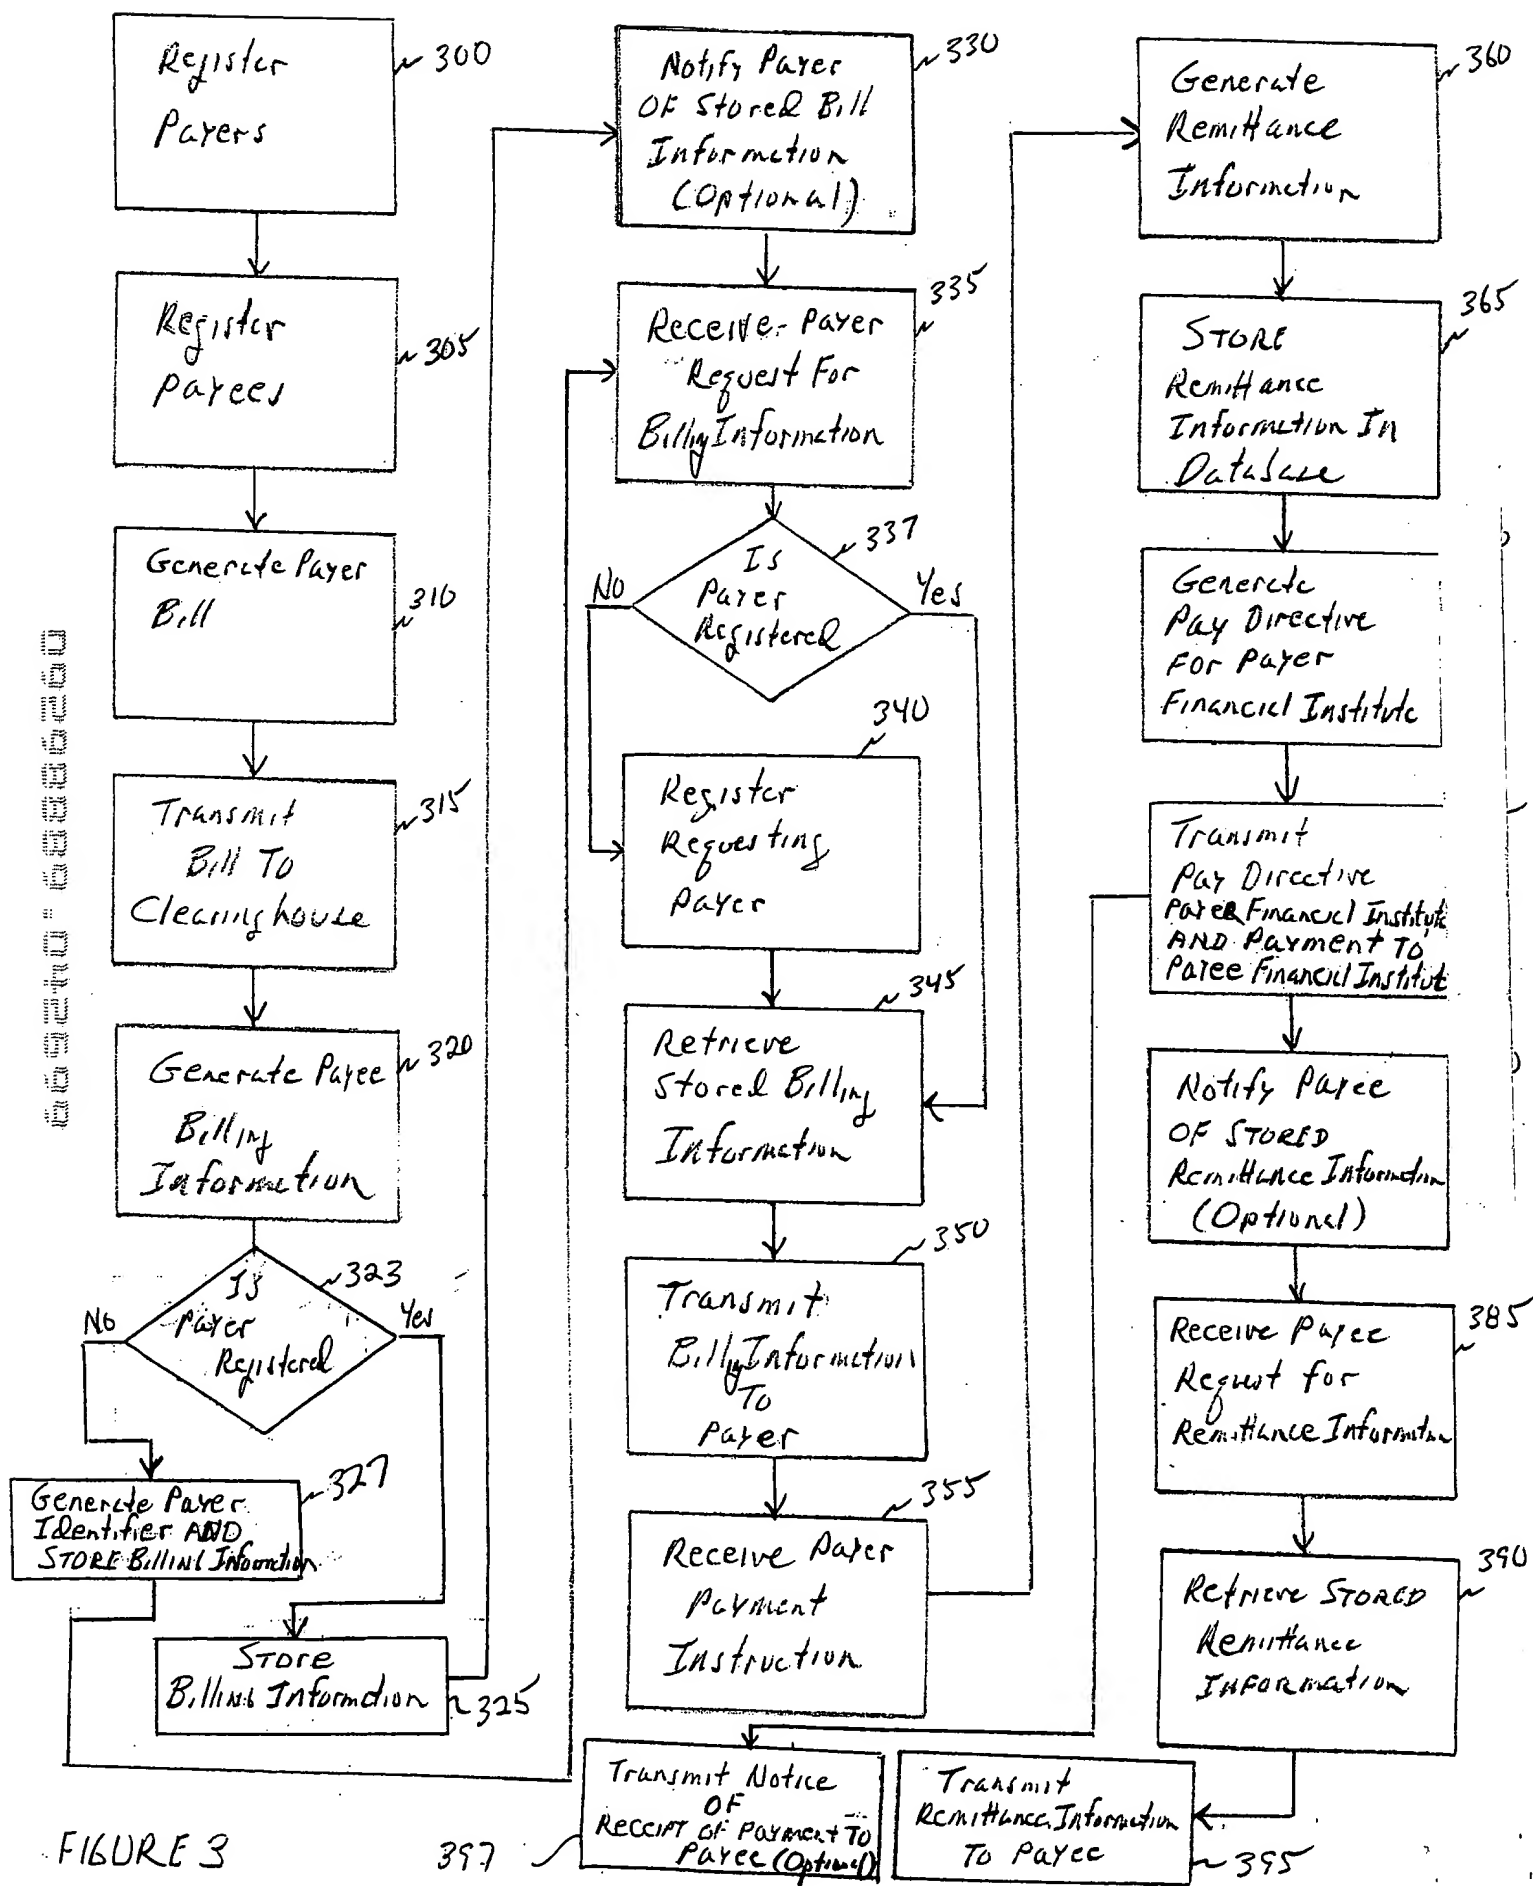 Register
Payers
300
Register
Payees
305
Generate Payer
Bill
310
Transmit
Bill To
Clearinghouse
315
Generate Payee
Billing
Information
320
Is
Payer
Registered
323
No
Yes
Generate Payer
Identifier AND
STORE Billing Information
327
Store
Billing Information
325
Notify Payer
OF Stored Bill
Information
(Optional)
330
Receive Payer
Request For
Billing Information
335
Is
Payer
Registered
337
No
Yes
340
Register
Requesting
Payer
345
Retrieve
Stored Billing
Information
350
Transmit
Billing Information
To
Payer
355
Receive Payer
Payment
Instruction
360
Generate
Remittance
Information
365
STORE
Remittance
Information In
Database
Generate
Pay Directive
For Payer
Financial Institute
Transmit
Pay Directive
Payer Financial Institute
AND Payment To
Payee Financial Institut
Notify Payee
OF STORED
Remittance Information
(Optional)
385
Receive Payee
Request for
Remittance Information
390
Retrieve STORED
Remittance
INFORMATION
Transmit
Remittance Information
To Payee
395
Transmit Notice
OF
RECEIPT OF PAYMENT TO
Payee (Optional)
397
FIGURE 3